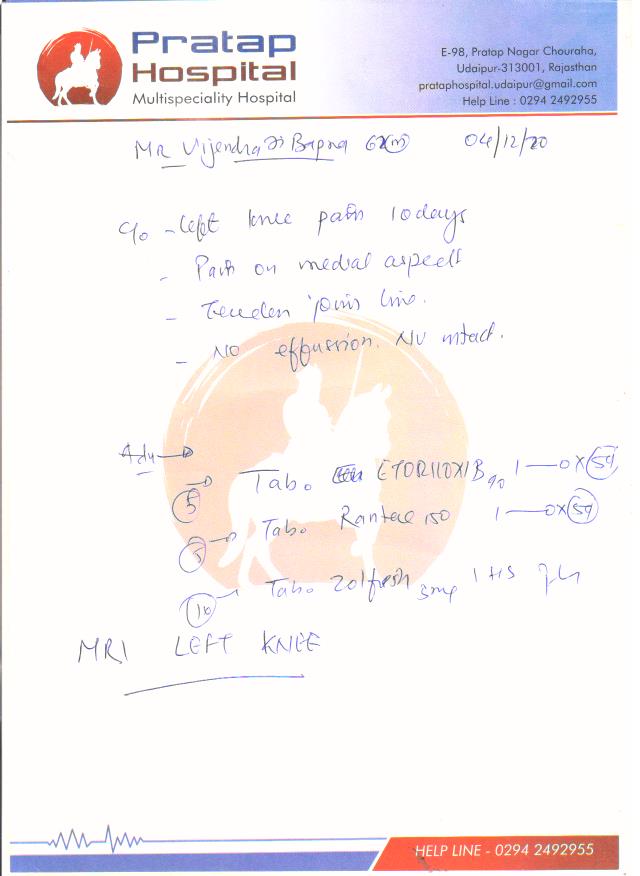 Pratap
Hospital
Multispeciality Hospital
E-98, Pratap Nagar Chouraha,
Udaipur-313001, Rajasthan
prataphospital.udaipur@gmail.com
Help Line : 0294 2492955
Mr Vijendra Bapna 04/12/20
C/o - Left knee pain 10 days
- Pain on medial aspect
- Tender joint line.
- No effussion. NV intact.
Adv
5 Tab. ETORICOXIB 90 1 — 0 X 5d
5 Tab. Rantac 150 1 — 0 X 5d
10 Tab. Zolfresh 1 HS
MRI LEFT KNEE
HELP LINE - 0294 2492955